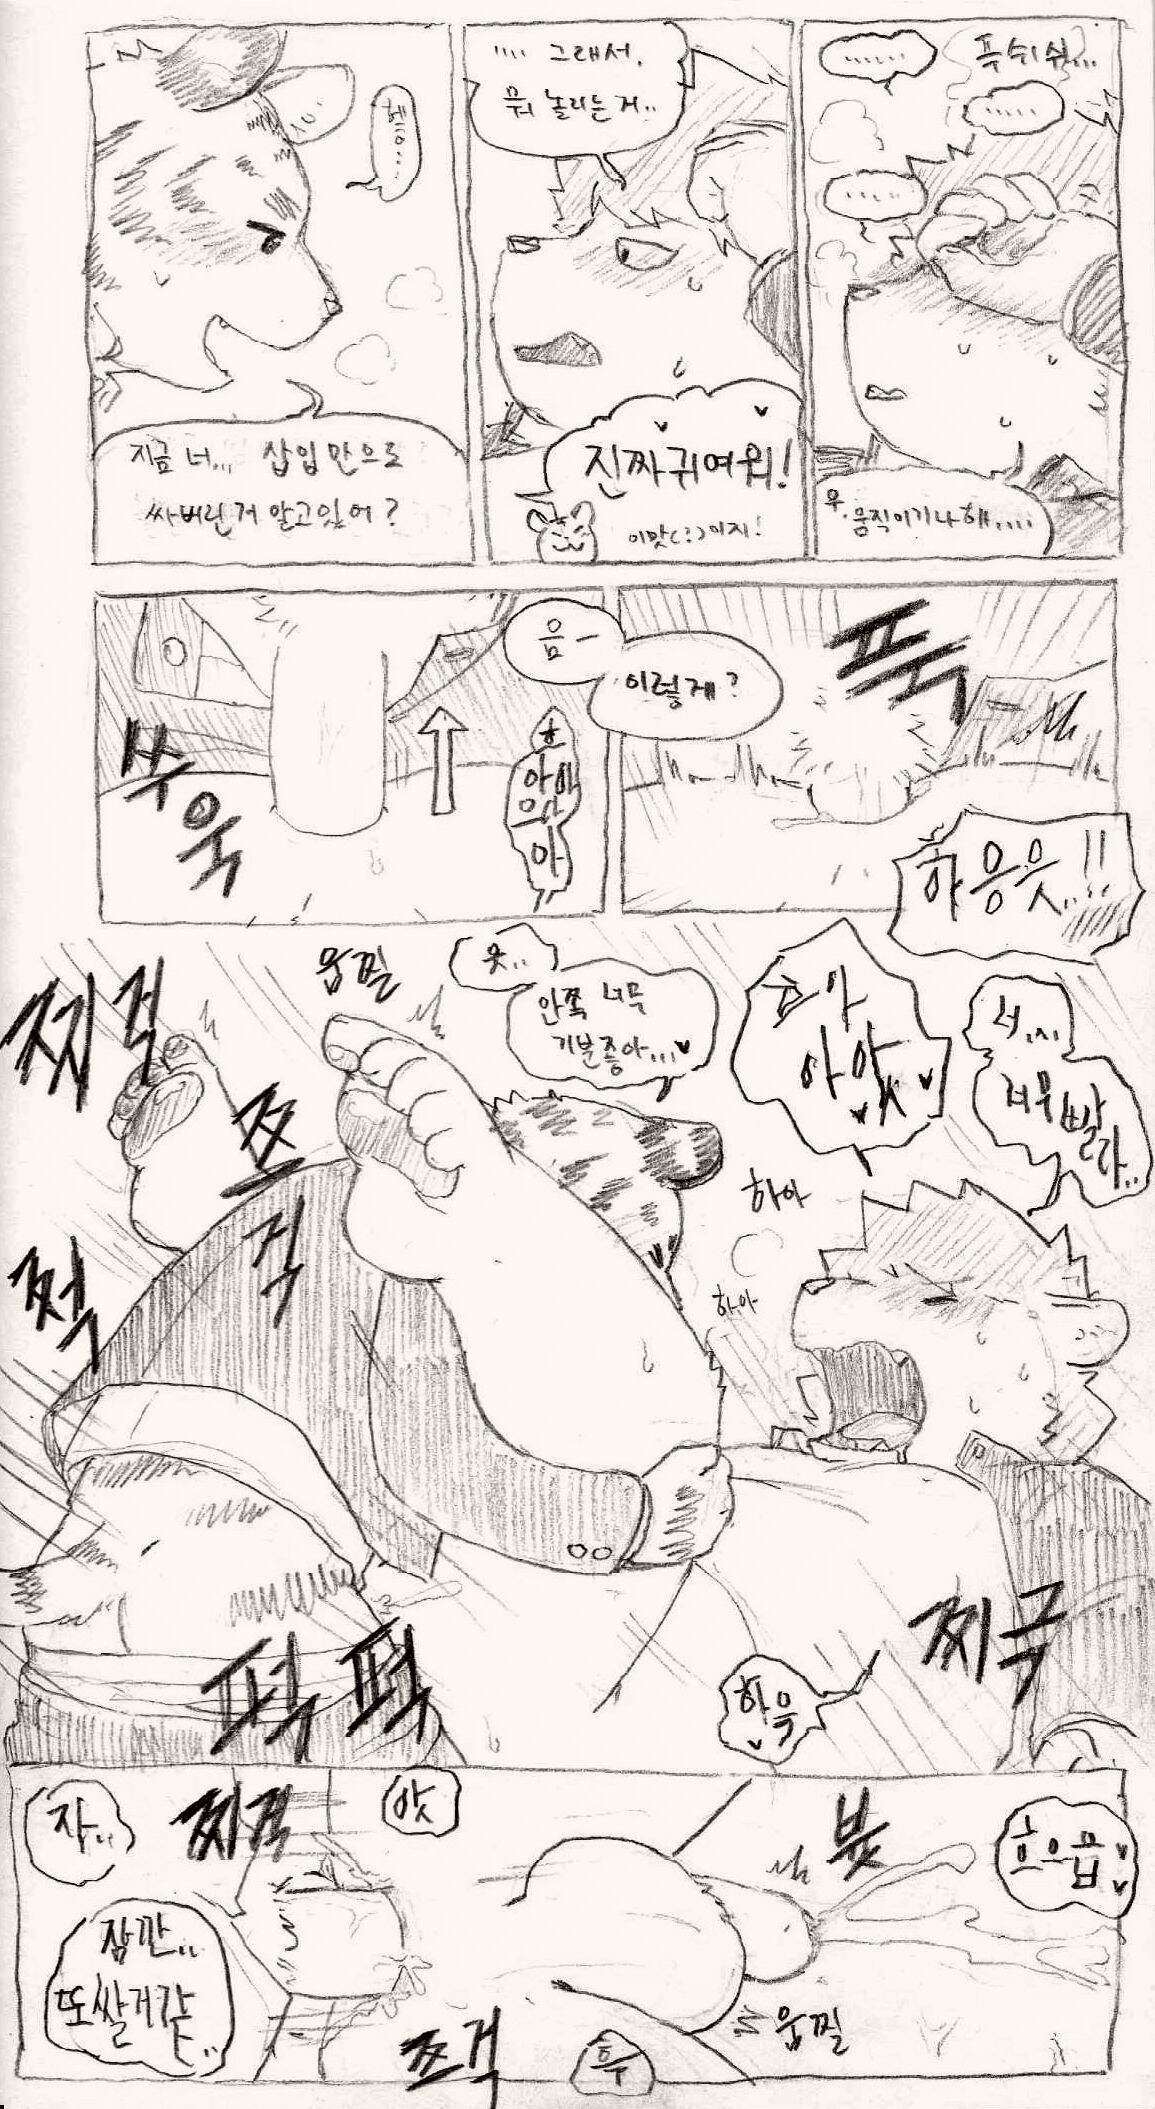 헤에....
지금 너... 삽입만으로
싸버린거 알고있어?
.... 그래서,
뭐 놀리는거..
진짜귀여워!
이맛(?)이지!
......
푸쉬쉬...
.....
.....
우, 움직이기나해....
쑤욱
음-
이렇게?
푹
하응읏..!!
찌걱
쯔걱
쩍
움찔
읏..
안쪽 너무
기분좋아...
흐아
아앗
세...
너무빨라..
하아
하아
퍽 퍽
찌극
하윽
자..
찌걱
앗
뷰웃
흐으읍
잠깐..
또쌀거같..
쯔걱
흑
움찔